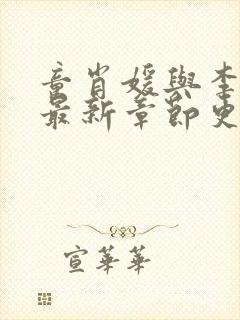 童肖媛與李
最新章節史
宣華華